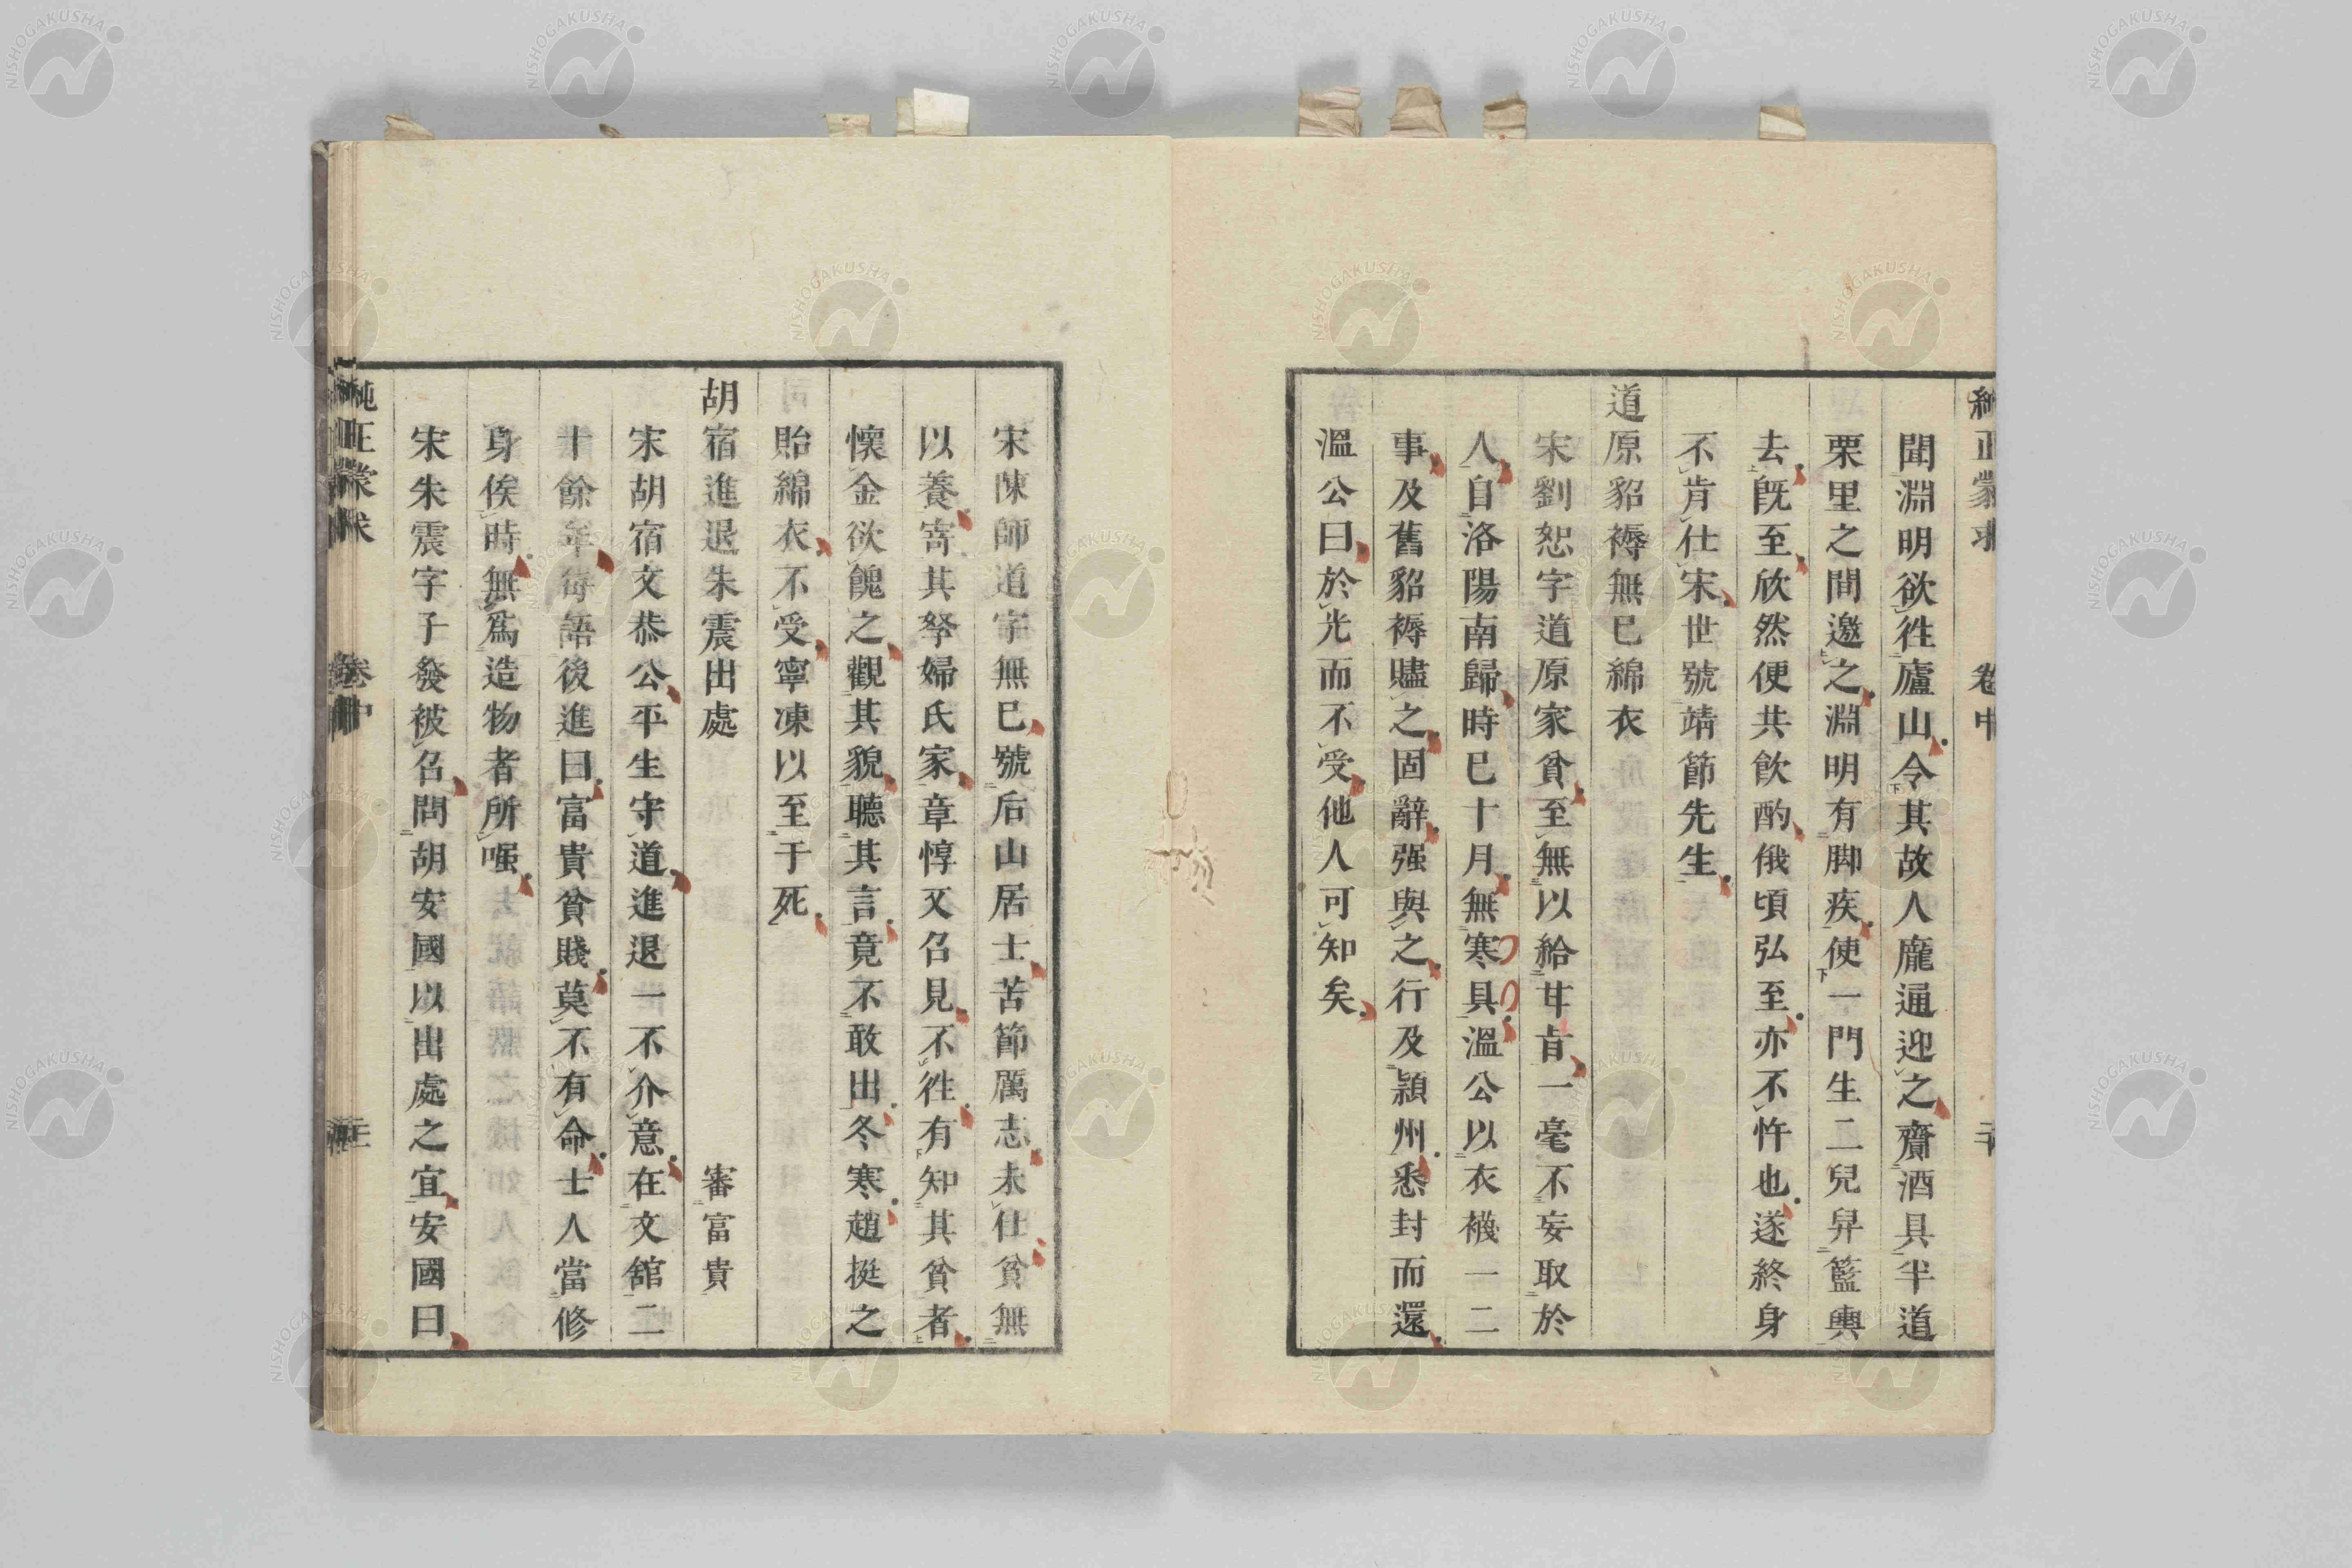 純正蒙求 卷中 二十
聞淵明欲徃廬山令其故人龐通迎之齎酒具半道
栗里之間邀之淵明有脚疾使一門生二兒舁籃輿
去旣至欣然便共飮酌俄頃弘至亦不忤也遂終身
不肯仕宋世號靖節先生
道原貂褥無已綿衣
宋劉恕字道原家貧至無以給甘旨一毫不妄取於
人自洛陽南歸時已十月無寒具溫公以衣襪一二
事及舊貂褥贐之固辭强與之行及潁州悉封而還
溫公曰於光而不受他人可知矣
宋陳師道字無已號后山居士苦節厲志未仕貧無
以養寄其孥婦氏家章惇又召見不徃有知其貧者
懷金欲餽之觀其貌聽其言竟不敢出冬寒趙挺之
貽綿衣不受寧凍以至于死
胡宿進退朱震出處 審富貴
宋胡宿文恭公平生守道進退一不介意在文舘二
十餘年每語後進曰富貴貧賤莫不有命士人當修
身俟時無爲造物者所嗤
宋朱震字子發被召問胡安國以出處之宜安國曰
純正蒙求 卷中
NISHOGAKUSHA